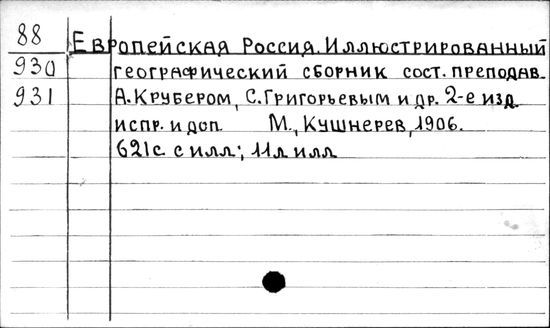 88 Европейская Россия. Иллюстрированный
930 географический сборник сост. преподав.
931 А. Крубером, С. Григорьевым и др. 2-е изд.
испр. и доп. М., Кушнерев, 1906.
621с. с илл; 11л илл